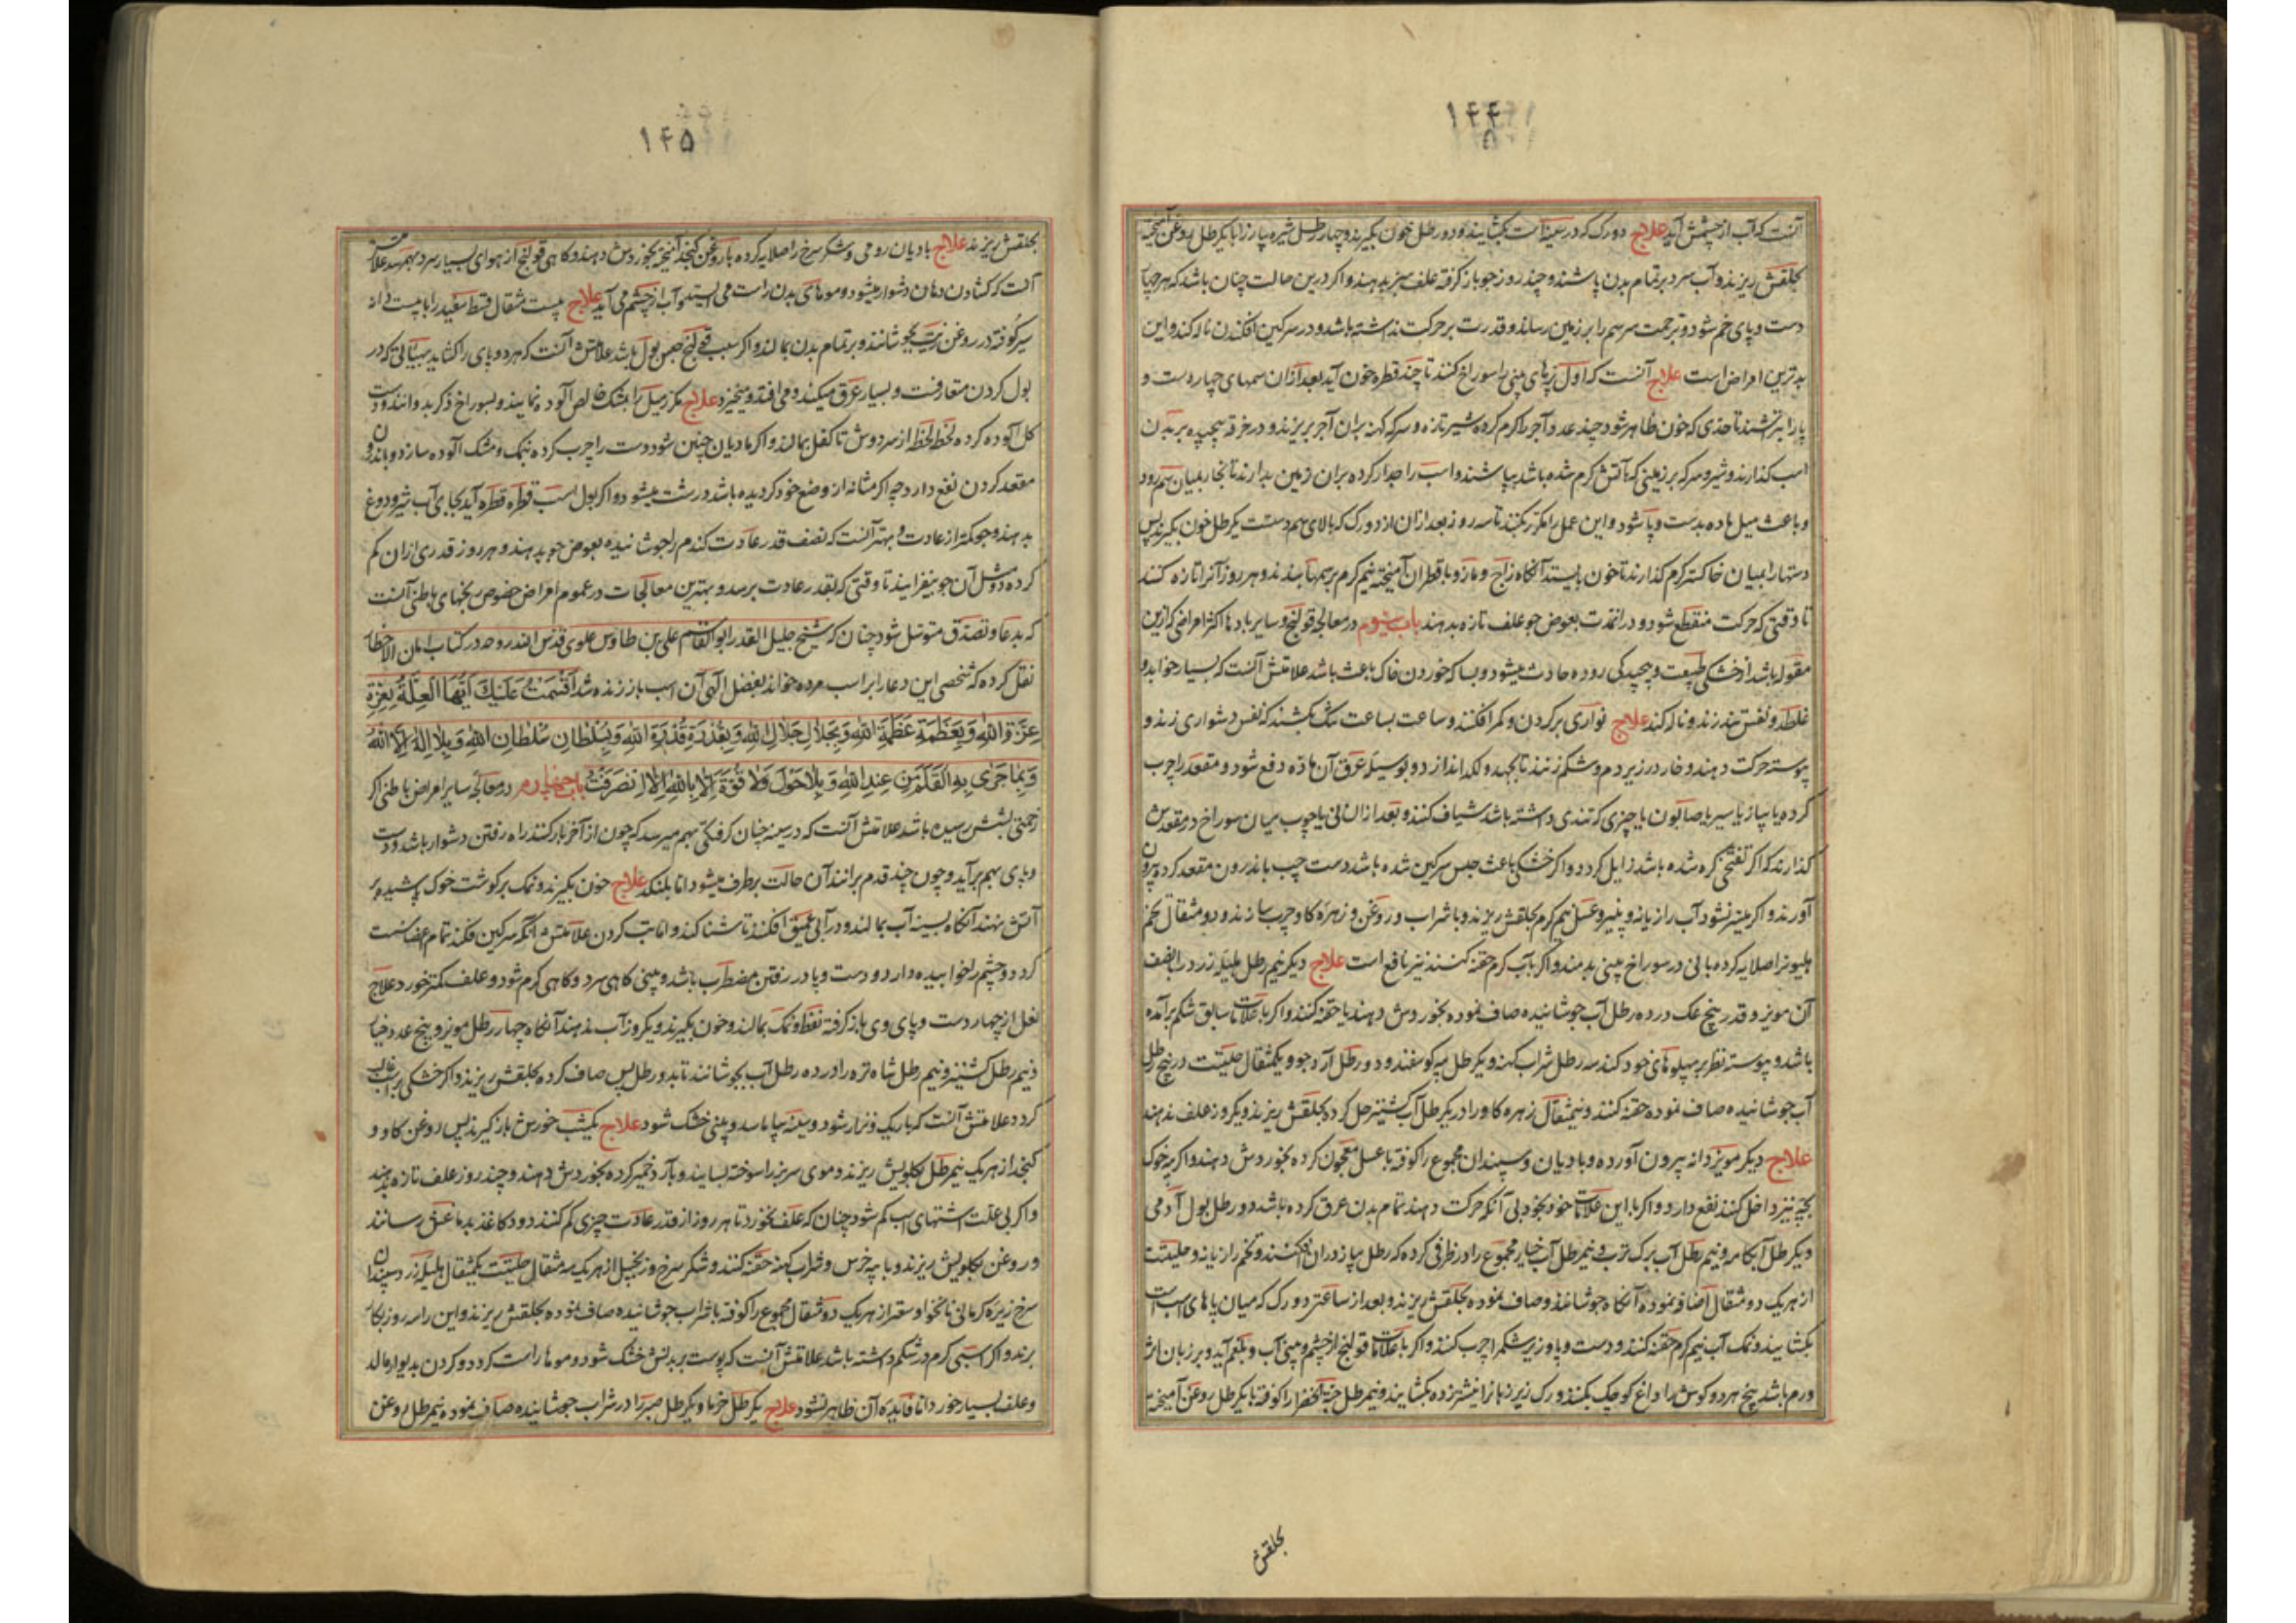 ۱۴۴
آنست که آب از چشمش آید علاج دو رک که در سینه است بکشایند و دو رطل خون بگیرند و چهار رطل شیره پیاز را با یکرطل روغن آمیخته
بحلقش ریزند و آب سرد بر تمام بدن پاشند و چند روز جو باز گرفته علف سبز بدهند و اکر درین حالت چنان باشد که هر چهار
دست و پای خم شود و بزحمت سر هم را بر زمین رساند و قدرت بر حرکت نداشته باشد و در سرکین افکندن ناله کند و این
بدترین امراض است علاج آنست که اول پره های بینی را سوراخ کنند تا چند قطره خون آید بعد از آن سمهای چهار دست و
پا را بتراشند تا حدی که خون ظاهر شود و چند عدد آجر را کرم کرده شیر تازه و سرکه کهنه بران آجر بریزند و در خرقه پیچیده بر بدن
اسب کذارند و شیر و سرکه بر زمینی که بآتش کرم شده باشد بپاشند و اسب را جدار کرده بران زمین بدارند تا بخار بمیان سم رود
و باعث میل ماده بدست و پا شود و این عمل را مکرر بکنند تا سه روز بعد ازان از دو رک که بالای سم دستست یکرطل خون بگیرند پس
دستها را بمیان خاکستر کرم کذارند تا خون بایستد آنگاه زاج و مازو با قطران آمیخته نیم کرم بر سمها بندند و هر روز آنرا تازه کنند
تا وقتی که حرکت منقطع شود و در انمدت بعوض جو علف تازه بدهند باب سیوم در معالجه قولنج و سایر بادها اکثر امراضی که ازین
مقوله باشد از خشکی طبیعت و پیچیدکی روده حادث میشود و بسا که خوردن خاک باعث باشد علامتش آنست که بسیار خوابد و
غلطد و نفس تند زند و ناله کند علاج نواری بر کردن و کمر افکنند و ساعت بساعت تنک بکشند که نفس دشواری زند و
پیوسته حرکت دهند و خار در زیر دم و شکم زنند تا بجهد و لکد اندازد و بوسیله عرق آن ماده دفع شود و مقعد را چرب
کرده یا پیاز یا سیر یا صابون یا چیزی که تندی داشته باشد شیاف کنند و بعد ازان نی یا چوب میان سوراخ در مقعدش
کذارند که اکر نفخی کره شده باشد زایل کردد و اکر خشکی باعث حبس سرکین شده باشد دست چپ باندرون مقعد کرده بیرون
آورند و اکر میسر نشود آب رازیانه و پنیر و عسل نیم کرم بحلقش ریزند و با شراب و روغن و زهره کاو چرب سازند و دو مثقال تخم
هلیون را صلایه کرده با نی در سوراخ بینی بدمند و اکر بآب کرم حقنه کنند نیز نافع است علاج دیگر نیم رطل هلیله زرد را بنصف
آن مویز و قدر پنج عک در ده رطل آب جوشانیده صاف نموده بخوردش دهند یا حقنه کنند و اکر با علامات سابق شکم برآمده
باشد و پیوسته نظر بر پهلوهای خود کند سه رطل شراب کهنه و یکرطل پیه کوسفند و دو رطل آرد جو و یکمثقال حلتیت در پنج رطل
آب جوشانیده صاف نموده حقنه کنند و نیمثقال زهره کاو را در یکرطل آب کشنیز حل کرده بحلقش بریزند و یکروز علف ندهند
علاج دیگر مویز دانه بیرون آورده و بادیان و سپندان مجموع را کوفته با عسل معجون کرده بخوردش دهند و اکر پیه خوک
بچه نیز داخل کنند نفع دارد و اکر با این علامات خود بخود بی آنکه حرکت دهند تمام بدن عرق کرده باشد دو رطل بول آدمی
و یکرطل آبکامه و نیم رطل آب برک ترب و نیمرطل آب خیار مجموع را در ظرفی کرده یکرطل پیاز دران افکنند و تخم رازیانه و حلتیت
از هریک دو مثقال اضافه نموده آنگاه جوشانند و صاف نموده بحلقش ریزند و بعد از ساعتی دو رک که میان پاهای اسب است
بکشایند و نمک آب نیم کرم حقنه کنند و دست و پا و زیر شکم را چرب کنند و اکر با علامات قولنج از چشم و بینی آب و بلغم آید و بر زبان اثر
ورم باشد بیخ هر دو کوش را داغ کوچک بکنند و رک زیر زبان را نیشتر زده بکشایند و نیمرطل حبة الخضرا را کوفته با یکرطل روغن آمیخته
بحلقش
۱۴۵
بحلقش ریزند علاج بادیان رومی و شکر سرخ را صلایه کرده با روغن کنجد آمیخته بخوردش دهند و کاهی قولنج از هوای بسیار سرد بهمرسد علامتش
آنست که کشادن دهان دشوار میشود و موهای بدن راست می ایستد و آب از چشم می آید علاج بیست مثقال قسط سفید را با بیست دانه
سیر کوفته در روغن زیت بجوشانند و بر تمام بدن بمالند و اکر سبب قولنج حبس بول باشد علامتش آنست که هر دو پای را کشاید بهیئتی که در
بول کردن متعارفست و بسیار عرق میکند و می افتد و میخیزد علاج مکرر میل را بمشک خالص آلوده نمایند و بسوراخ ذکر بدوانند و دست
کل آلوده کرده لحظه لحظه از سر دوش تا کفل بمالند و اکر مادیان چنین شود دست را چرب کرده بنمک و مشک آلوده سازد و باندرون
مقعد کردن نفع دارد چه اکر مثانه از وضع خود کردیده باشد درست میشود و اکر بول اسب قطره قطره آید بجای آب شیر و دوغ
بدهند و جو کمتر از عادت و بهتر آنست که نصف قدر عادت کندم را جوشانیده بعوض جو بدهند و هر روز قدری ازان کم
کرده دو مثل آن جو بیفزایند تا وقتی که بقدر عادت برسد و بهترین معالجات در عموم امراض خصوص رنجهای باطنی آنست
که بدعا و تصدق متوسل شود چنان که شیخ جلیل القدر ابوالقاسم علی بن طاوس علوی قدس الله روحه در کتاب امان الاخطار
نقل کرده که شخصی این دعا را بر اسب مرده خواند بفضل الهی آن اسب باز زنده شد اَقْسَمْتُ عَلَیْكَ اَیَّتُهَا الْعِلَّةُ بِعِزَّةِ
عِزَّةِ اللهِ وَبِعَظَمَةِ عَظَمَةِ اللهِ وَبِجَلَالِ جَلَالِ اللهِ وَبِقُدْرَةِ قُدْرَةِ اللهِ وَبِسُلْطَانِ سُلْطَانِ اللهِ وَبِلَا اِلٰهَ اِلَّا اللهُ
وَبِمَا جَرٰی بِهِ الْقَلَمُ مِنْ عِنْدِ اللهِ وَبِلَا حَوْلَ وَلَا قُوَّةَ اِلَّا بِاللهِ اِلَّا انْصَرَفْتَ باب چهارم در معالجه سایر امراض باطنی اکر
زحمتی بشش رسیده باشد علامتش آنست که در سینه چنان کرفتکی بهم میرسد که چون از آخر بار کنند راه رفتن دشوار باشد و دست
و پای بهم برآید و چون چند قدم برانند آن حالت برطرف میشود اما بلنکد علاج خون بگیرند و نمک بر کوشت خوک پاشیده بر
آتش نهند آنگاه بسینه آب بمالند و در آبی عمیق افکنند تا شنا کند و اما تب کردن علامتش آنکه سرکین فکند تمام اعضا سست
کردد و چشم را خوابیده دارد و دست و پا در رفتن مضطرب باشد و بینی کاهی سرد و کاهی کرم شود و علف کمتر خورد علاج
نعل از چهار دست و پای وی باز کرفته نفط و نمک بمالند و خون بگیرند و یکروز آب ندهند آنگاه چهار رطل مویز و پنج عدد خیار
و نیم رطل کشنیز و نیم رطل شاه تره را در ده رطل آب بجوشانند تا بدو رطل پس صاف کرده بحلقش ریزند و اکر خشکی بر اسب غالب
کردد علامتش آنست که باریک و نزار شود و سینه بیاماسد و بینی خشک شود علاج یکشب خورش باز گیرند پس روغن کاو و
کنجد از هریک نیمرطل بکلویش ریزند و موی سر بز را سوخته بسایند و بآرد خمیر کرده بخوردش دهند و چند روز علف تازه بدهند
و اکر بی علت اشتهای اسب کم شود چنان که علف نخورد تا هر روز از قدر عادت چیزی کم کنند دود کاغذ بدماغش رسانند
و روغن بکلویش ریزند و با پیه خرس و شراب کهنه حقنه کنند و شکر سرخ و زنجبیل از هریک سه مثقال حلتیت یکمثقال هلیله زرد سپندان
سرخ زیره کرمانی نانخواه و سعتر از هریک دو مثقال مجموع را کوفته با شراب جوشانیده صاف نموده بحلقش ریزند و این را سه روز بکار
برند و اکر اسبی کرم در شکم داشته باشد علامتش آنست که پوست بر بدنش خشک شود و موها راست کردد و کردن بدیوار مالد
و علف بسیار خورد اما فایده آن ظاهر نشود علاج یکرطل خرما و یکرطل صبر را در شراب جوشانیده صاف نموده نیمرطل روغن